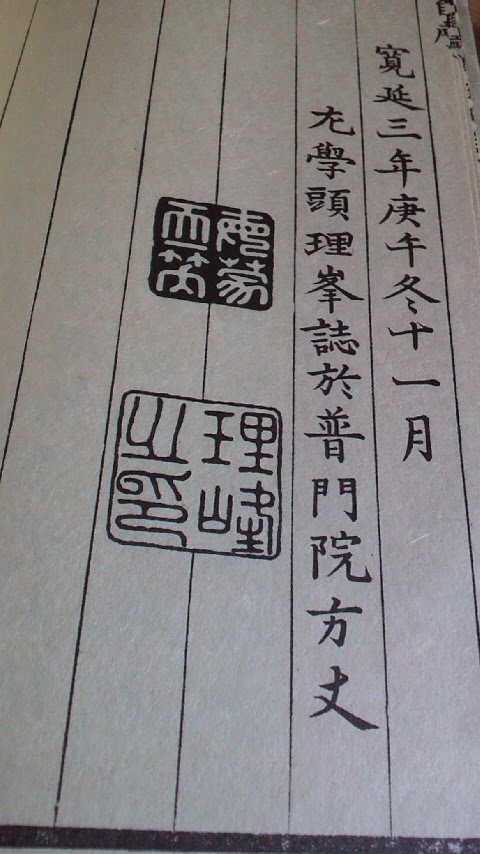 寬延三年庚午冬十一月
學頭理峯誌於普門院方丈
理峰
之印